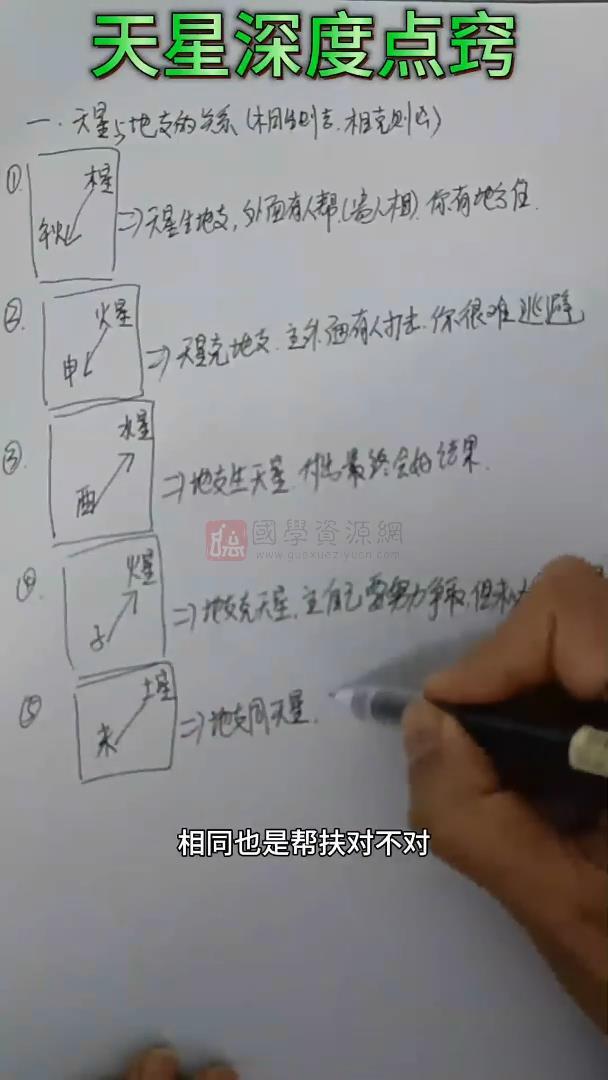 天星深度点窍
一. 天星与地支的关系(相生则吉.相克则凶)
① 木星
⇒天星生地支,外面有人帮,(富人相).你有地方住.
② 火星
申
⇒天星克地支.主外面有人打击.你很难逃避
③ 水星
酉
⇒地支生天星.付出最终会好结果.
國學資源網
www.guoxueziyuan.com
④ 火星
子
⇒地支克天星,主自己要努力争取,但
⑤ 土星
未
⇒地支同天星.
相同也是帮扶对不对